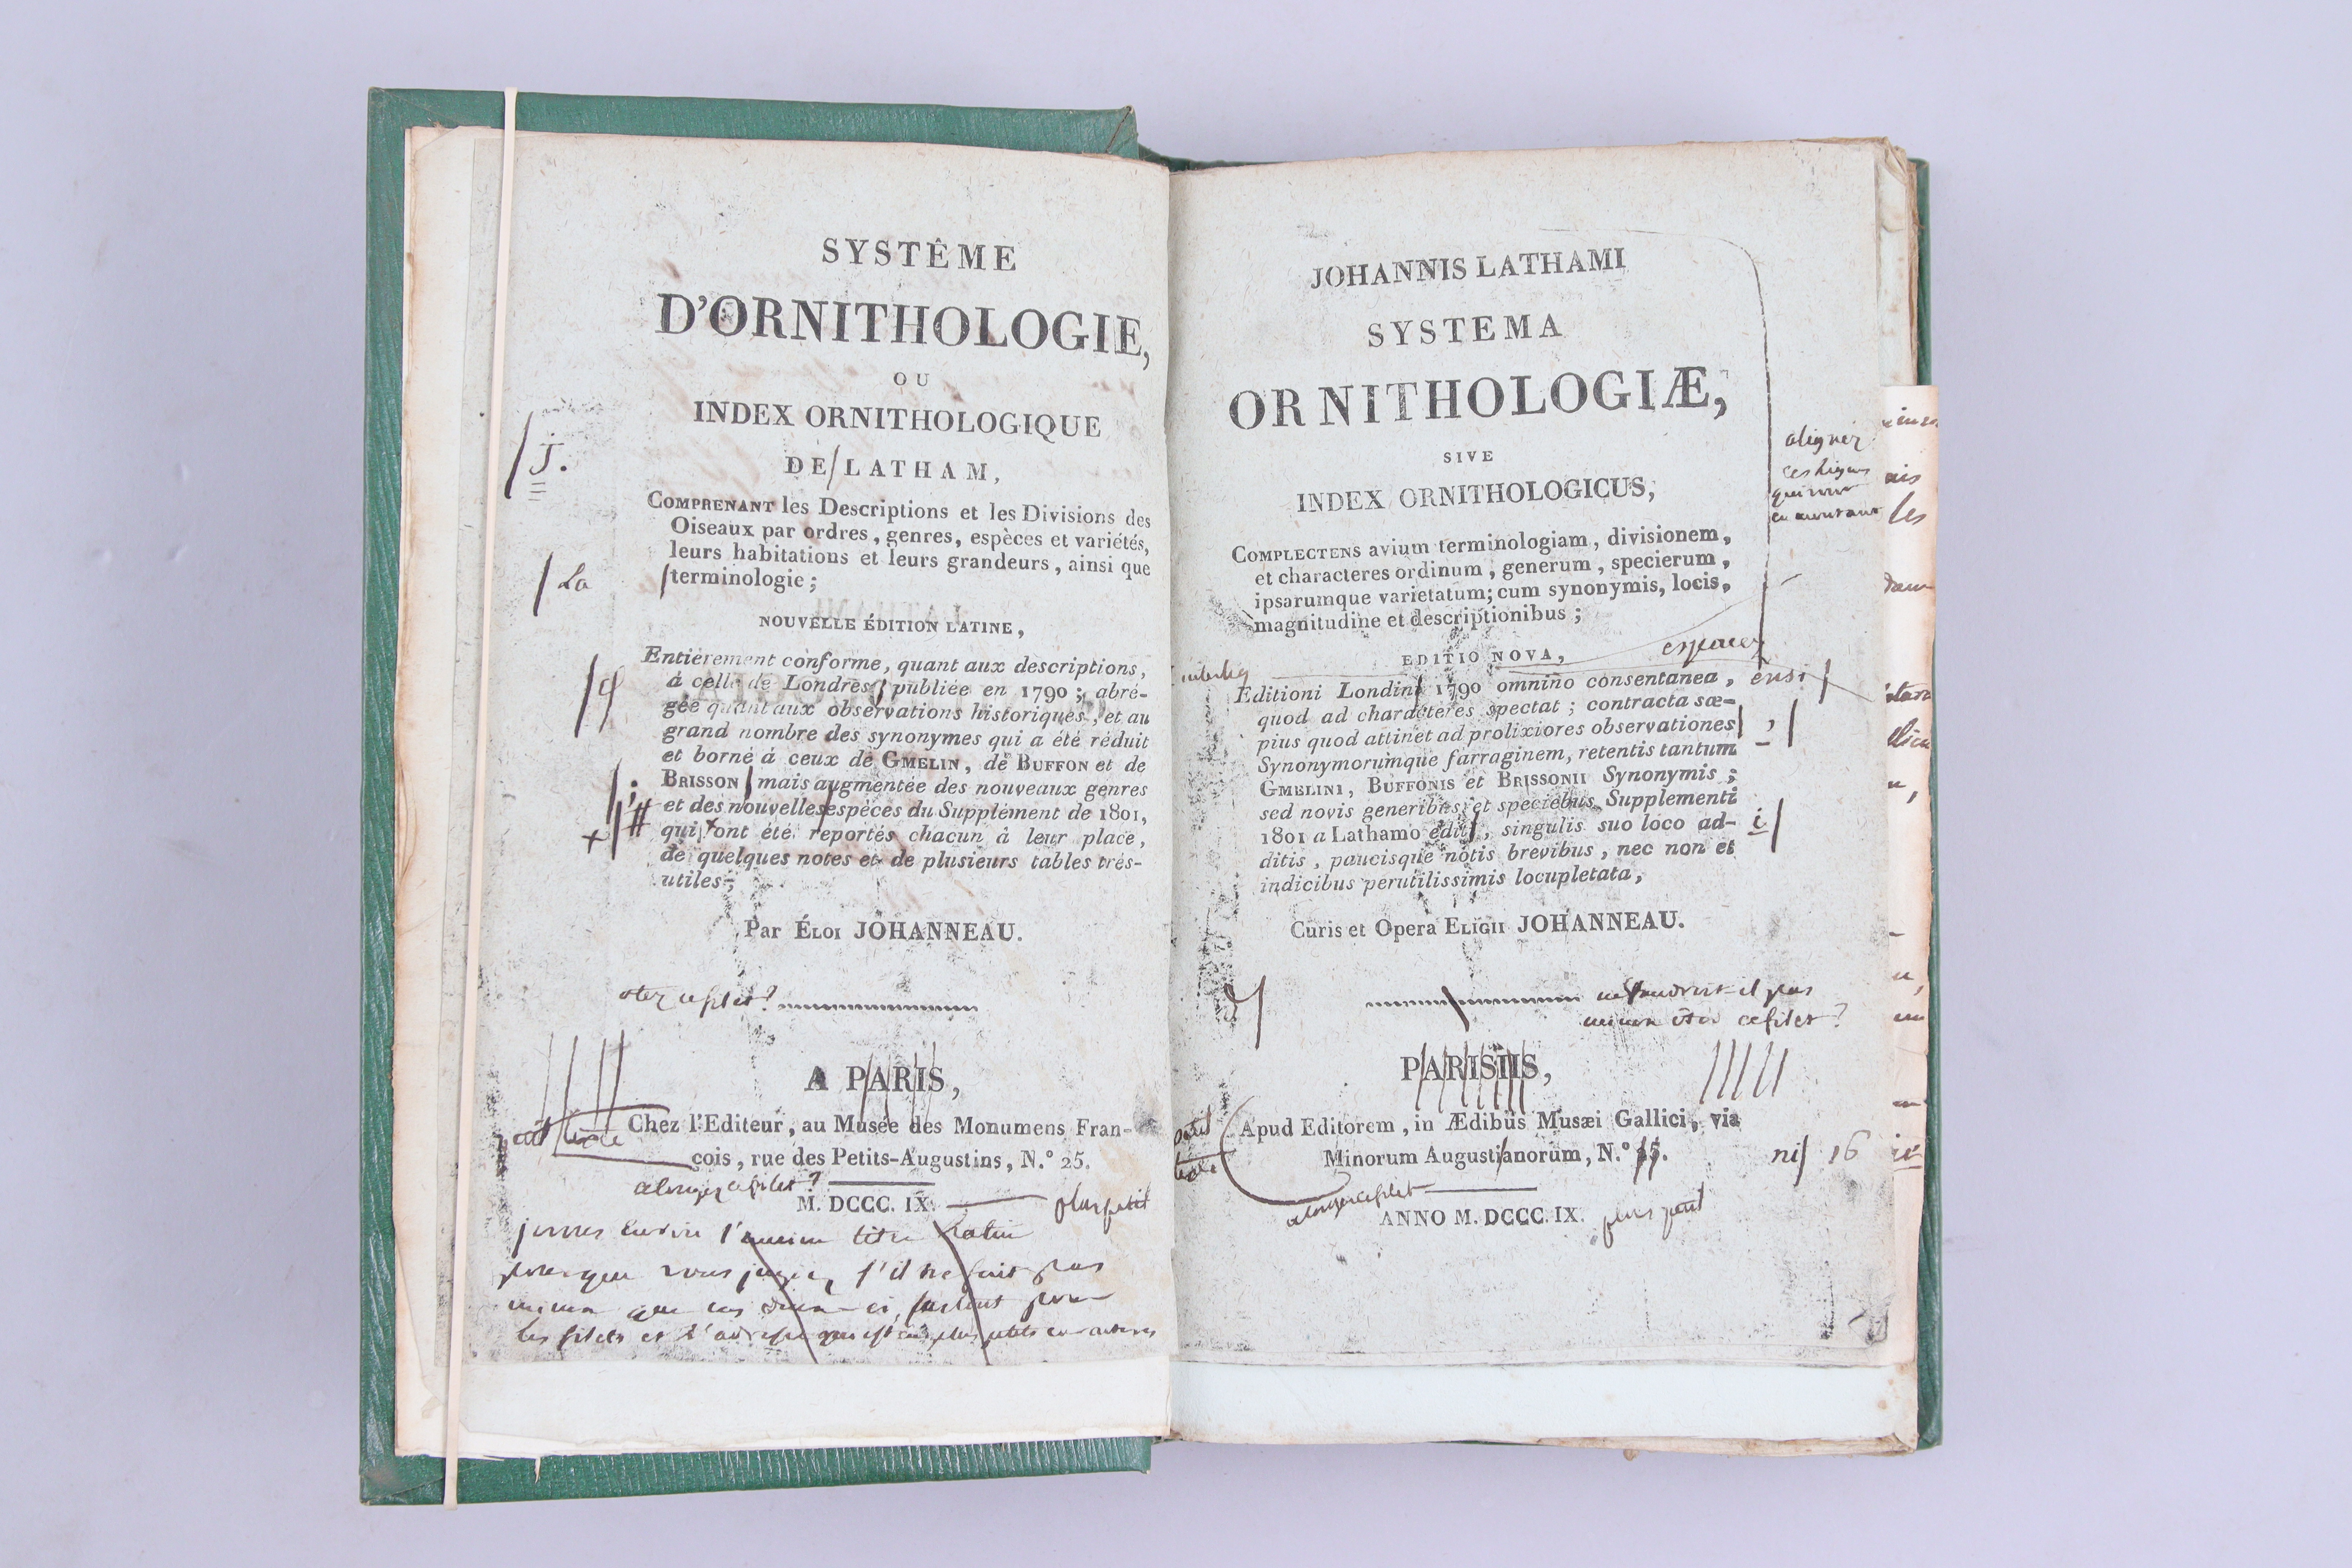 SYSTÊME
D'ORNITHOLOGIE,
OU
INDEX ORNITHOLOGIQUE
DE LATHAM,
/ J.
COMPRENANT les Descriptions et les Divisions des
Oiseaux par ordres, genres, espèces et variétés,
leurs habitations et leurs grandeurs, ainsi que
/ La
terminologie;
NOUVELLE ÉDITION LATINE,
Entièrement conforme, quant aux descriptions,
à celle de Londres, publiée en 1790; abré-
gée quant aux observations historiques, et au
grand nombre des synonymes qui a été réduit
et borné à ceux de GMELIN, de BUFFON et de
BRISSON mais augmentée des nouveaux genres
et des nouvelles espèces du Supplément de 1801,
qui ont été reportés chacun à leur place,
de quelques notes et de plusieurs tables très-
utiles;
Par ÉLOI JOHANNEAU.
otez ce filet?
A PARIS,
Chez l'Editeur, au Musée des Monumens Fran-
cois, rue des Petits-Augustins, N.° 25.
alongez ce filet?
M. DCCC. IX.
plus petit
l'ancien titre latin
pour que vous jugiez s'il ne fait pas
mieux que ces deux-ci, surtout pour
les filets et l'adresse qui est en plus petits caractères
JOHANNIS LATHAMI
SYSTEMA
ORNITHOLOGIÆ,
SIVE
INDEX ORNITHOLOGICUS,
aligner
ces lignes
qui vont
en montant
COMPLECTENS avium terminologiam, divisionem,
et characteres ordinum, generum, specierum,
ipsarumque varietatum; cum synonymis, locis,
magnitudine et descriptionibus;
EDITIO NOVA,
espacez
Editioni Londin 1790 omnino consentanea,
ensi /
quod ad characteres spectat; contracta sæ-
pius quod attinet ad prolixiores observationes
, /
Synonymorumque farraginem, retentis tantum
GMELINI, BUFFONIS et BRISSONII Synonymis;
sed novis generibus et speciebus Supplementi
1801 a Lathamo edit, singulis suo loco ad-
i /
ditis, paucisque notis brevibus, nec non et
indicibus perutilissimis locupletata,
Curis et Opera ELIGII JOHANNEAU.
ne faudroit-il pas
mieux ôter ce filet?
PARISIIS,
Apud Editorem, in Ædibus Musæi Gallici, via
Minorum Augustianorum, N.° 15.
ni/ 16
alongez ce filet
ANNO M. DCCC. IX.
plus petit